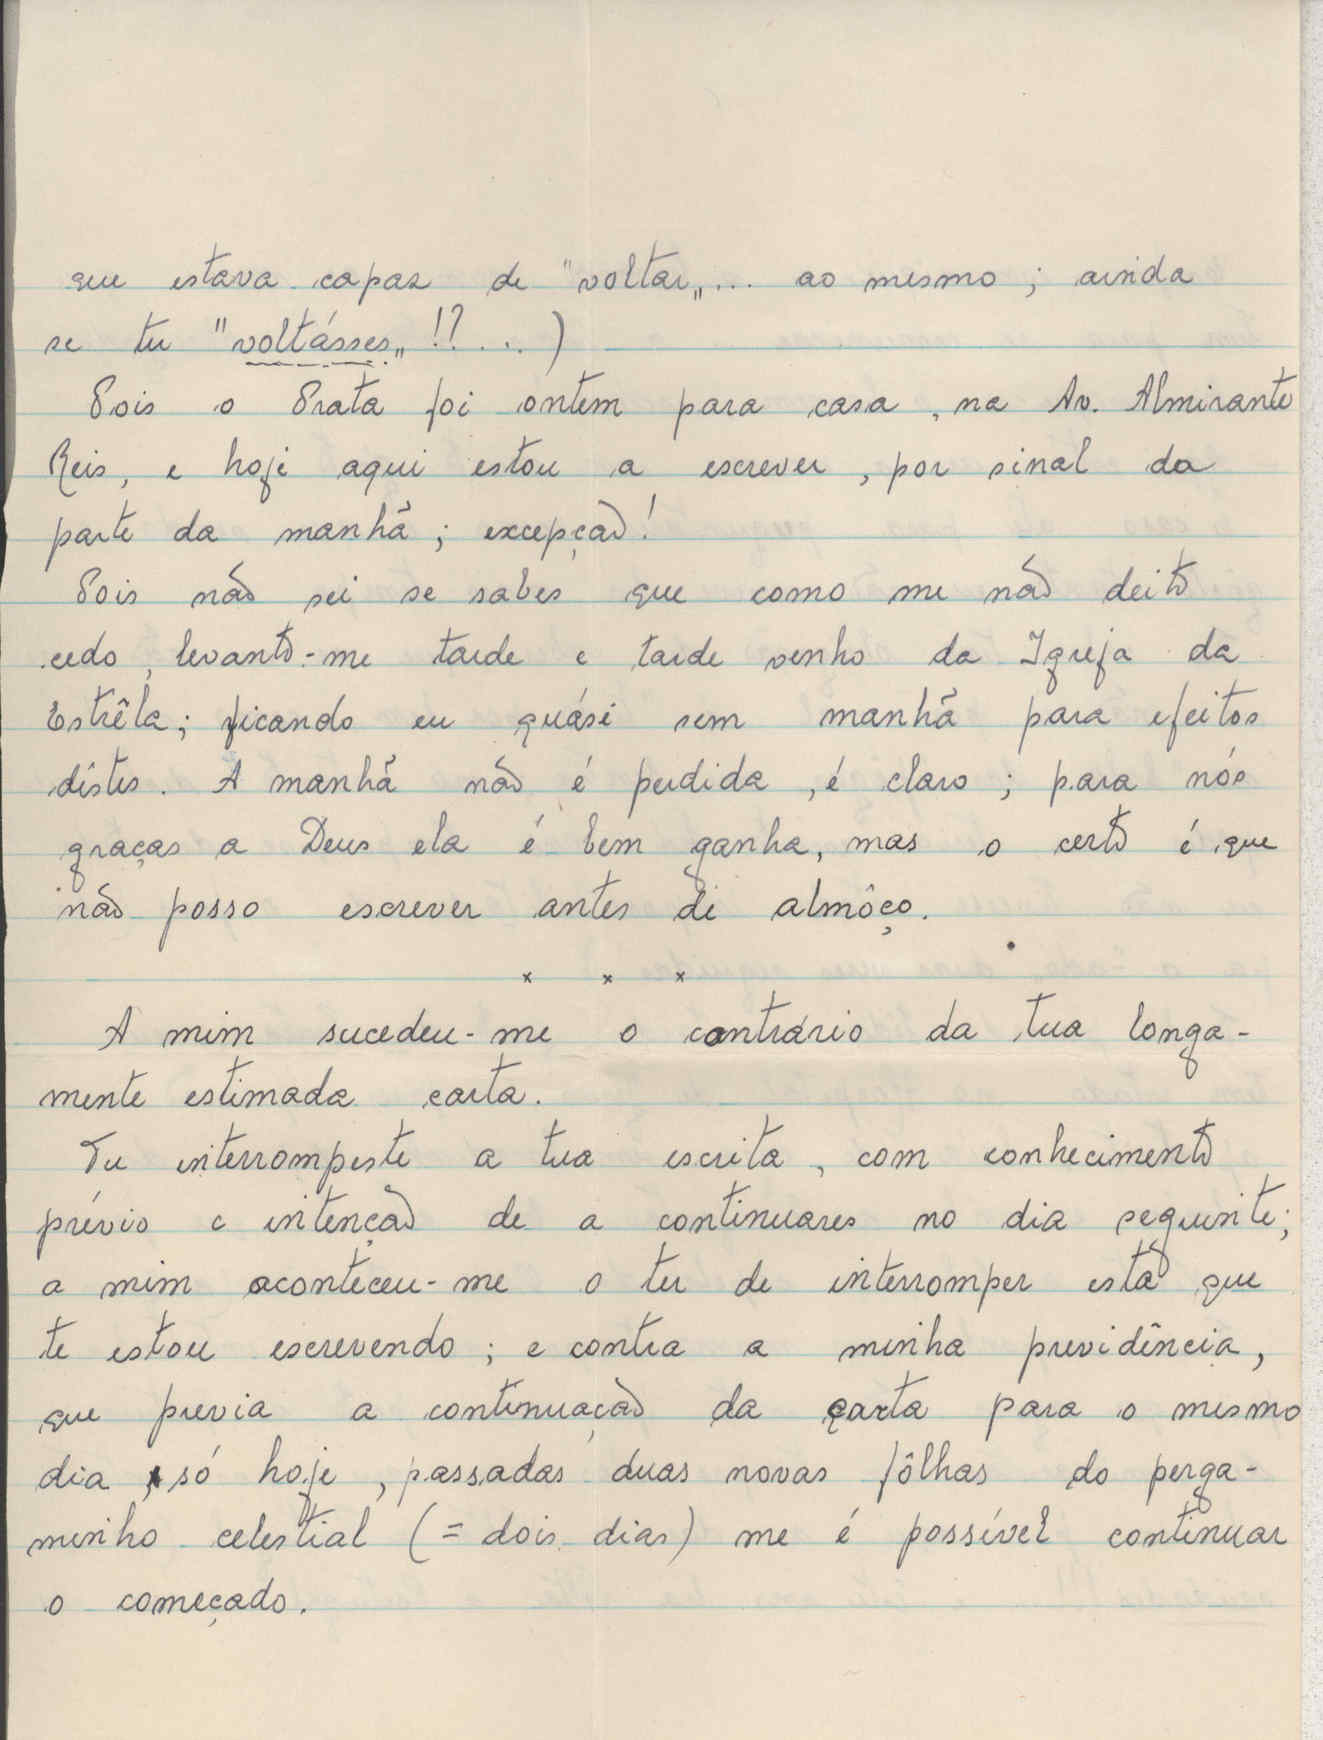 que estava capaz de "voltar„... ao mesmo; ainda
se tu "voltásses„!?...)
Pois o Prata foi ontem para casa, na Av. Almirante
Reis, e hoje aqui estou a escrever, por sinal da
parte da manhã; excepção!
Pois não sei se sabes que como me não deito
cedo, levanto-me tarde e tarde venho da Igreja da
Estrêla; ficando eu quási sem manhã para efeitos
dêstes. A manhã não é perdida, é claro; para nós
graças a Deus ela é bem ganha, mas o certo é que
não posso escrever antes de almôço.
x x x
A mim sucedeu-me o contrário da tua longa-
mente estimada carta.
Tu interrompeste a tua escrita, com conhecimento
prévio e intenção de a continuares no dia seguinte;
a mim aconteceu-me o ter de interromper esta que
te estou escrevendo; e contra a minha previdência,
que previa a continuação da carta para o mesmo
dia, só hoje, passadas duas novas fôlhas do perga-
minho celestial (= dois dias) me é possível continuar
o começado.